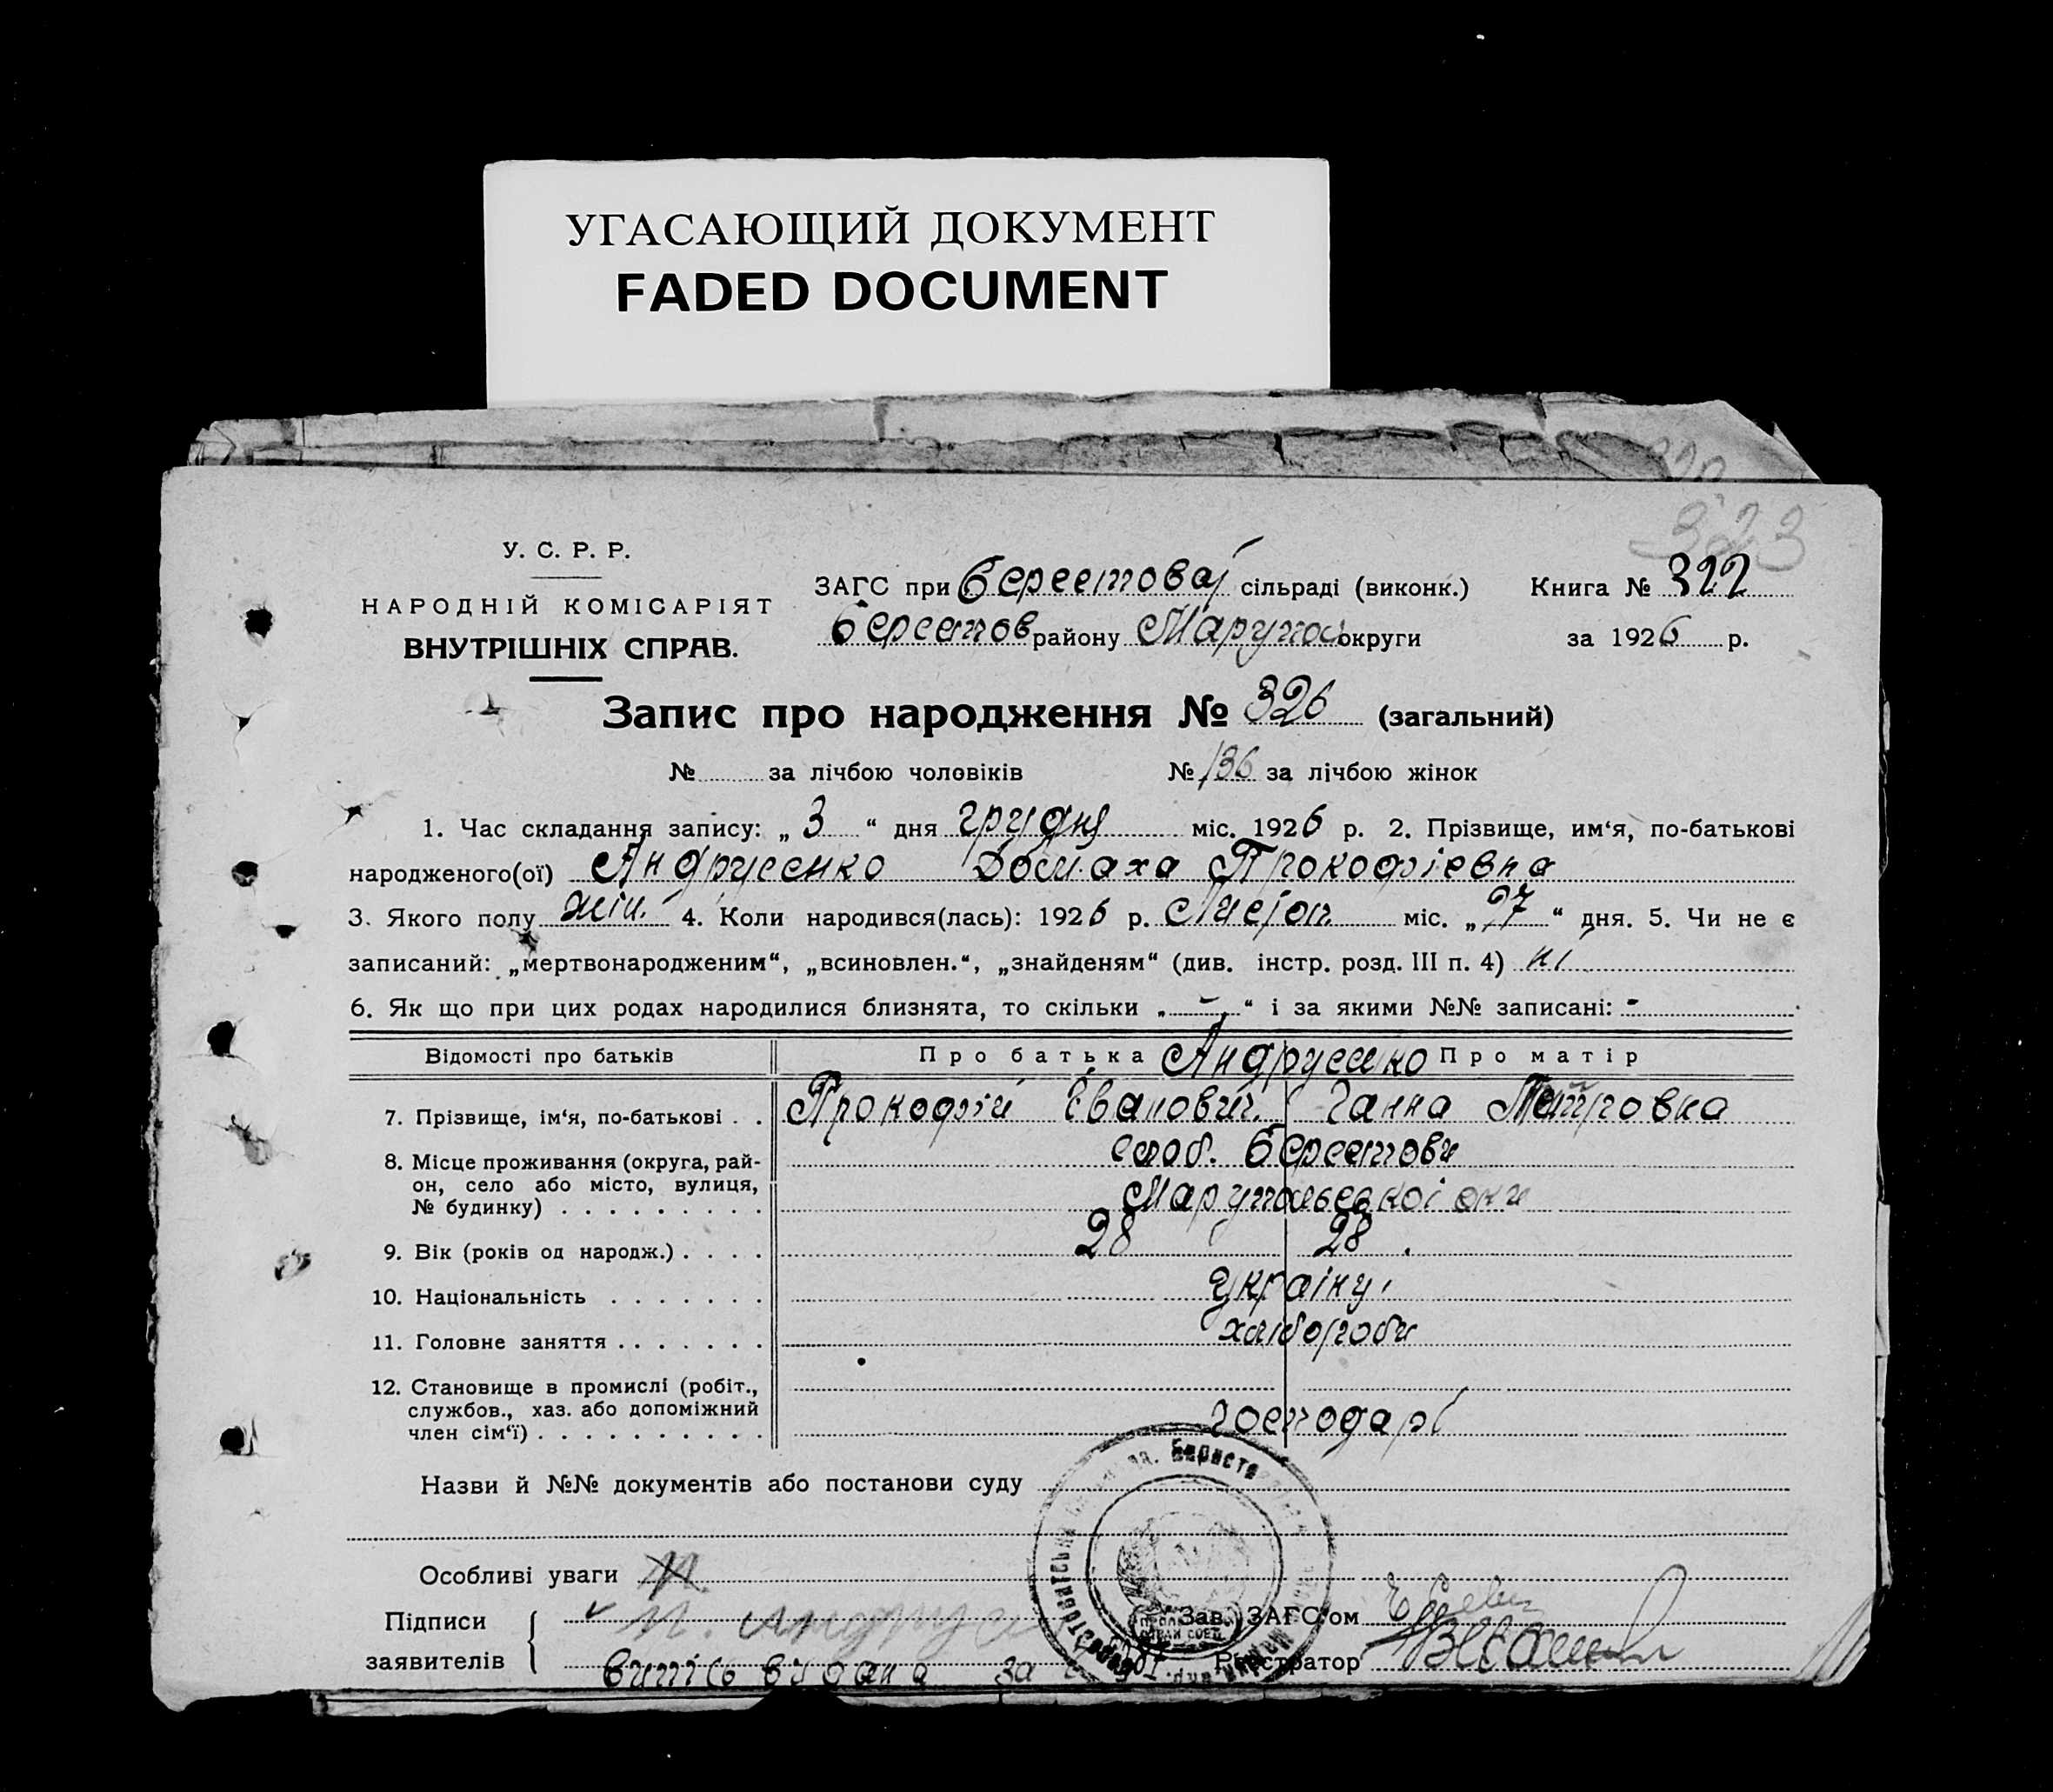 УГАСАЮЩИЙ ДОКУМЕНТ
FADED DOCUMENT
323
У. С. Р. Р.
НАРОДНІЙ КОМІСАРІЯТ
ВНУТРІШНІХ СПРАВ.
ЗАГС при Берестовай сільраді (виконк.) Книга № 322
Берестов району Марупол округи за 1926 р.
Запис про народження № 326 (загальний)
№ за лічбою чоловіків № 136 за лічбою жінок
1. Час складання запису: „ 3 “ дня грудня міс. 1926 р. 2. Прізвище, им‘я, по-батькові
народженого(ої) Андрусенко Домаха Прокофіевна
3. Якого полу жін. 4. Коли народився(лась): 1926 р. Листоп міс. „ 27 “ дня. 5. Чи не є
записаний: „мертвонародженим“, „всиновлен.“, „знайденям“ (див. інстр. розд. III п. 4) ні
6. Як що при цих родах народилися близнята, то скільки „ - “ і за якими №№ записані: -
Відомості про батьків Про батька Андрусенко Про матір
7. Прізвище, ім‘я, по-батькові . . Прокофій Іванович Ганна Петровна
8. Місце проживання (округа, рай-
он, село або місто, вулиця,
№ будинку) . . . . . . . . .
слоб. Берестови
Марупольскої окп
9. Вік (років од народж.) . . . . 28 28
10. Національність . . . . . . . україну
11. Головне заняття . . . . . . . хлібороби
12. Становище в промислі (робіт.,
службов., хаз. або допоміжний
член сім‘ї) . . . . . . . . . .
господарі
Назви й №№ документів або постанови суду
Особливі уваги
Підписи
заявителів
П. Андрус
Зав. ЗАГС‘ом
випісь видана за
Реєстратор